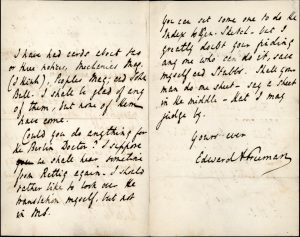 I have had cards about two
or three notices, Mechanics Mag.
(I think), Peoples Mag, and John
Bull. I shall be glad of any
of them, but none of them
have come.
Could you do anything for
the Berlin Doctor? I suppose
we shall hear sometime
from Rettig again. I should
rather like to look over the
translation myself, but not
in MS.
You can set some one to do the
Index to Gen. Sketch. but I
greatly doubt your finding
any one who can do it, save
myself and Stubbs. Shall your
man do one sheet - say a sheet
in the middle - that I may
judge by.
Yours ever
Edward A Freeman